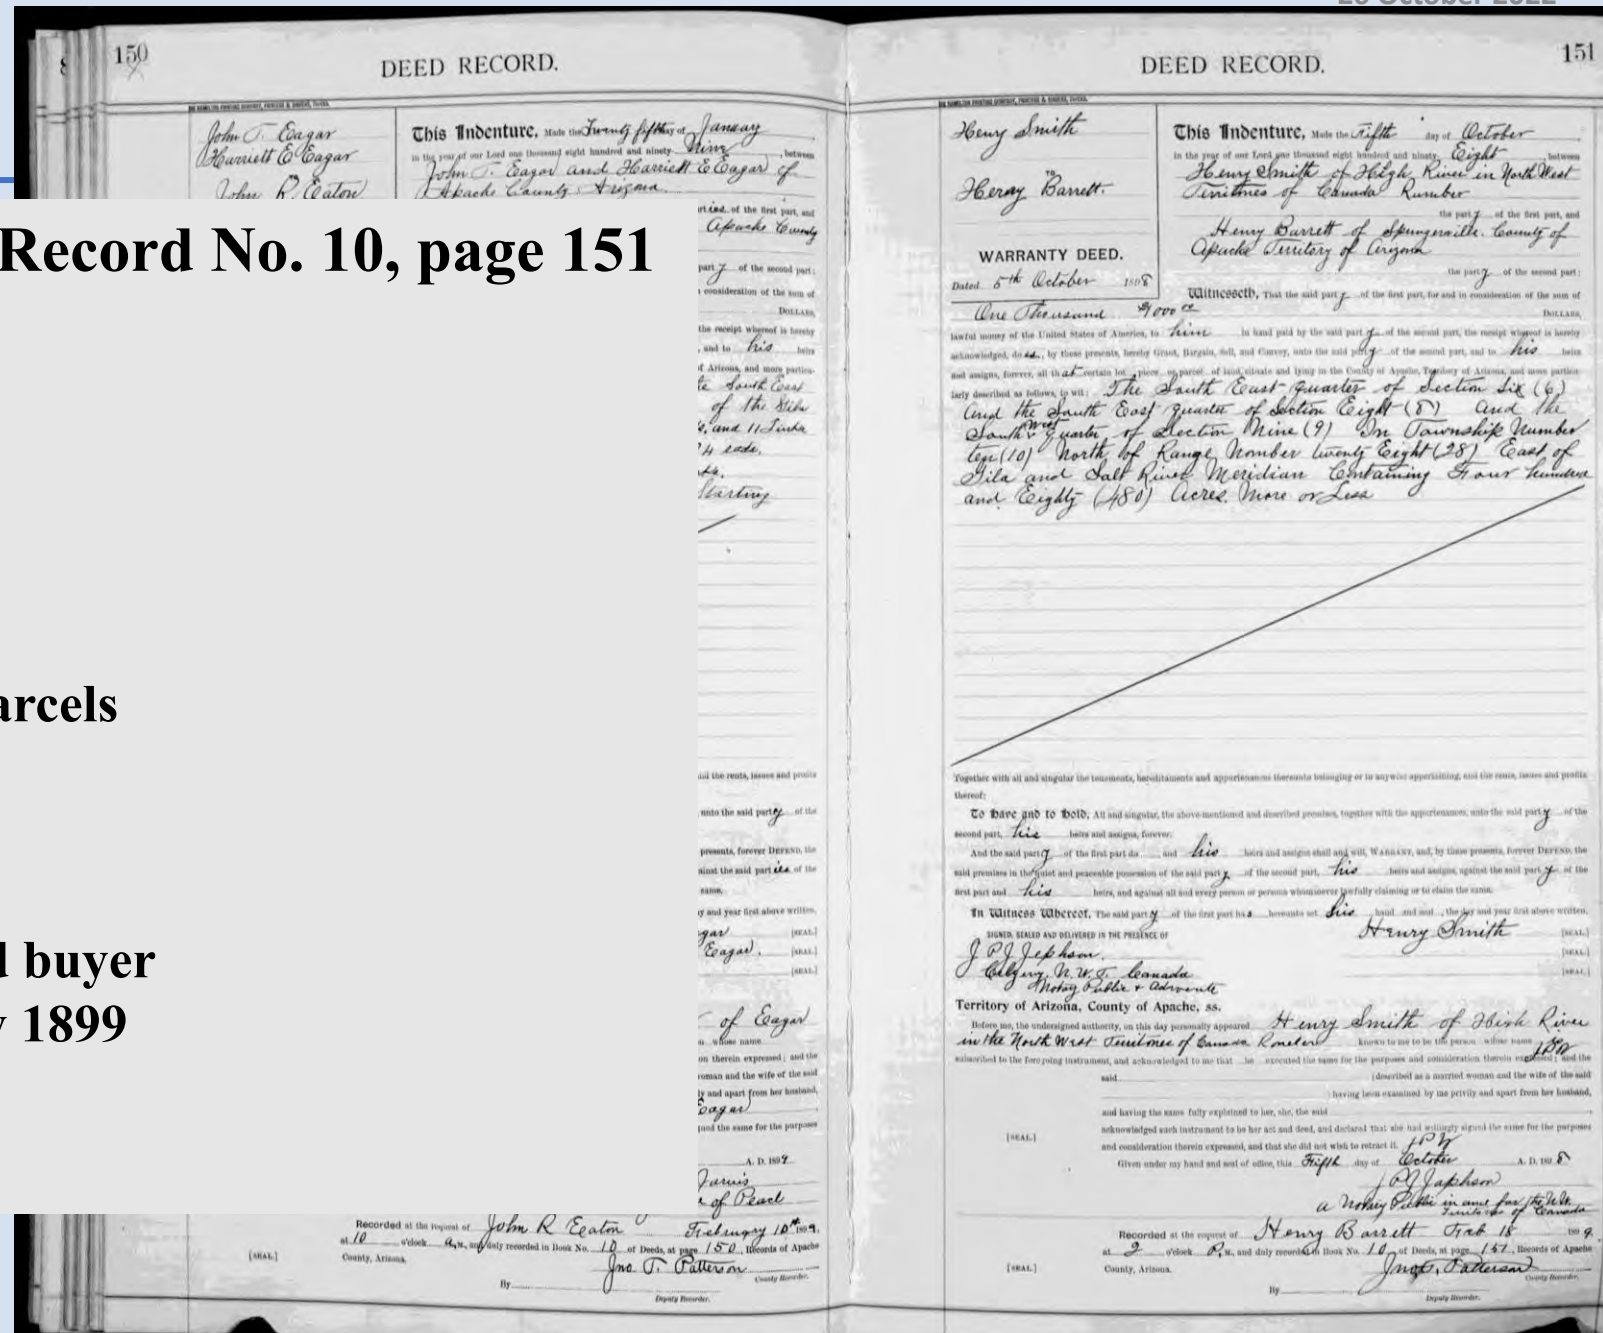 26 October 2022
Record No. 10, page 151
arcels
d buyer
y 1899
150
DEED RECORD.
John T. Eagar
Harriett E Eagar
John R. Eaton
This Indenture, Made the Twenty fifth day of Januay
in the year of our Lord one thousand eight hundred and ninety Nine, between
John T. Eagar and Harriett E Eagar of
Apache County Arizona.
rties of the first part, and
Apache County
part y of the second part:
consideration of the sum of
DOLLARS,
the receipt whereof is hereby
, and to his heirs
of Arizona, and more partic-
South East
of the
and 11 Links
24 rods.
Starting
and the rents, issues and profits
unto the said party of the
presents, forever DEFEND, the
against the said parties of the
same.
y and year first above written.
gar [SEAL.]
Eagar. [SEAL.]
[SEAL.]
of Eagar
whose name
on therein expressed; and the
woman and the wife of the said
ly and apart from her husband,
Eagar
and the same for the purposes
A. D. 1899
Jarvis
of Pearl
Recorded at the request of John R Eaton February 10th 1899.
at 10 o'clock A. M., and duly recorded in Book No. 10 of Deeds, at page 150, Records of Apache
County, Arizona.
[SEAL.]
Jno. T. Patterson
County Recorder.
By
Deputy Recorder.
151
DEED RECORD.
Henry Smith
TO
Heray Barrett.
WARRANTY DEED.
Dated 5th October 1898
This Indenture, Made the Fifth day of October
in the year of our Lord one thousand eight hundred and ninety Eight, between
Henry Smith of High River in North West
Territories of Canada Rumber
the party of the first part, and
Henry Barrett of Springerville. County of
Apache Territory of Arizona
the party of the second part:
Witnesseth, That the said party of the first part, for and in consideration of the sum of
One Thousand $1000 00 DOLLARS,
lawful money of the United States of America, to him in hand paid by the said party of the second part, the receipt whereof is hereby
acknowledged, does, by these presents, hereby Grant, Bargain, Sell, and Convey, unto the said party of the second part, and to his heirs
and assigns, forever, all that certain lot, piece or parcel of land, situate and lying in the County of Apache, Territory of Arizona, and more partic-
larly described as follows, to wit: The South East quarter of Section Six (6)
and the South East quarter of Section Eight (8) and the
South West quarter of Section Nine (9) In Township Number
ten (10) North of Range Nomber twenty Eight (28) East of
Gila and Salt River Meridian Containing Four hundred
and Eighty (480) Acres. More or Less
Together with all and singular the tenements, hereditaments and appurtenances thereunto belonging or in anywise appertaining, and the rents, issues and profits
thereof:
To have and to hold, All and singular, the above-mentioned and described premises, together with the appurtenances, unto the said party of the
second part, his heirs and assigns, forever.
And the said party of the first part do and his heirs and assigns shall and will, WARRANT, and, by these presents, forever DEFEND, the
said premises in the quiet and peaceable possession of the said party of the second part, his heirs and assigns, against the said party of the
first part and his heirs, and against all and every person or persons whomsoever lawfully claiming or to claim the same.
In Witness Whereof, The said party of the first part has hereunto set his hand and seal, the day and year first above written.
SIGNED, SEALED AND DELIVERED IN THE PRESENCE OF
Henry Smith [SEAL.]
J P J Jephson.
Calgary. N. W. T. Canada [SEAL.]
Notary Public & Advocate
Territory of Arizona, County of Apache, ss.
Before me, the undersigned authority, on this day personally appeared Henry Smith of High River
in the North West Territories of Canada known to me to be the person whose name
subscribed to the foregoing instrument, and acknowledged to me that he executed the same for the purposes and consideration therein expressed; and the
said (described as a married woman and the wife of the said
) having been examined by me privily and apart from her husband,
and having the same fully explained to her, she, the said
acknowledged such instrument to be her act and deed, and declared that she had willingly signed the same for the purposes
and consideration therein expressed, and that she did not wish to retract it.
[SEAL.]
Given under my hand and seal of office, this Fifth day of October A. D. 1898
J P J Japhson
a Notary Public in and for the N.W.
Territories of Canada
Recorded at the request of Henry Barrett Feb 18 1899.
at 2 o'clock P. M., and duly recorded in Book No. 10, of Deeds, at page 151, Records of Apache
[SEAL.] County, Arizona.
Jno. T. Patterson
County Recorder.
By
Deputy Recorder.